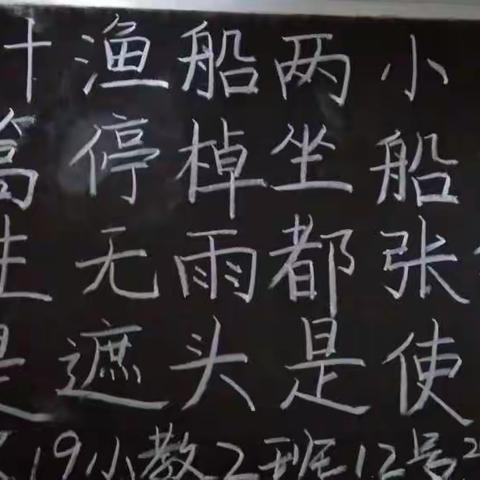 渔船两小
篙停棹坐船
生无雨都张
是遮头是使
19小教2班12号